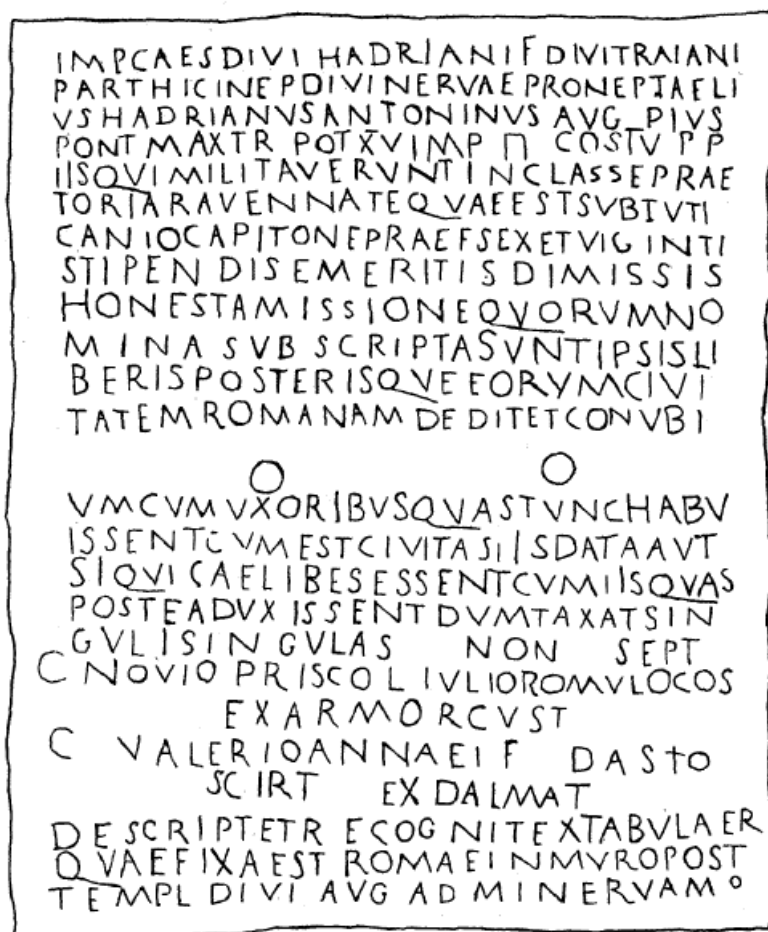 IMPCAESDIVI HADRIANIFDIVITRAIANI
PARTHICINEPDIVINERVAEPRONEPTAELI
VSHADRIANVSANTONINVS AVG PIVS
PONT MAXTR POT XVIMP II COSIV PP
IISQVIMILITAVERVNTINCLASSEPRAE
TORIARAVENNATEQVAEESTSVBTVTI
CANIOCAPITONEPRAEFSEXETVIGINTI
STIPENDISEMERITISDIMISSIS
HONESTAMISSIONEQVORVMNO
MINASVBSCRIPTASVNTIPSISLI
BERISPOSTERISQVEEORVMCIVI
TATEMROMANAMDEDITETCONVBI
VMCVMVXORIBVSQVASTVNCHABV
ISSENTCVMESTCIVITASIISDATAAVT
SIQVICAELIBESESSENTCVMIISQVAS
POSTEADVXISSENTDVMTAXATSIN
GVLISINGVLAS NON SEPT
C NOVIO PRISCO L IVLIOROMVLOCOS
EXARMORCVST
C VALERIOANNAEI F DASTO
SCIRT EX DALMAT
DESCRIPTETRECOGNITEXTABVLAER
QVAEFIXAESTROMAEINMVROPOST
TEMPL DIVI AVG ADMINERVAM